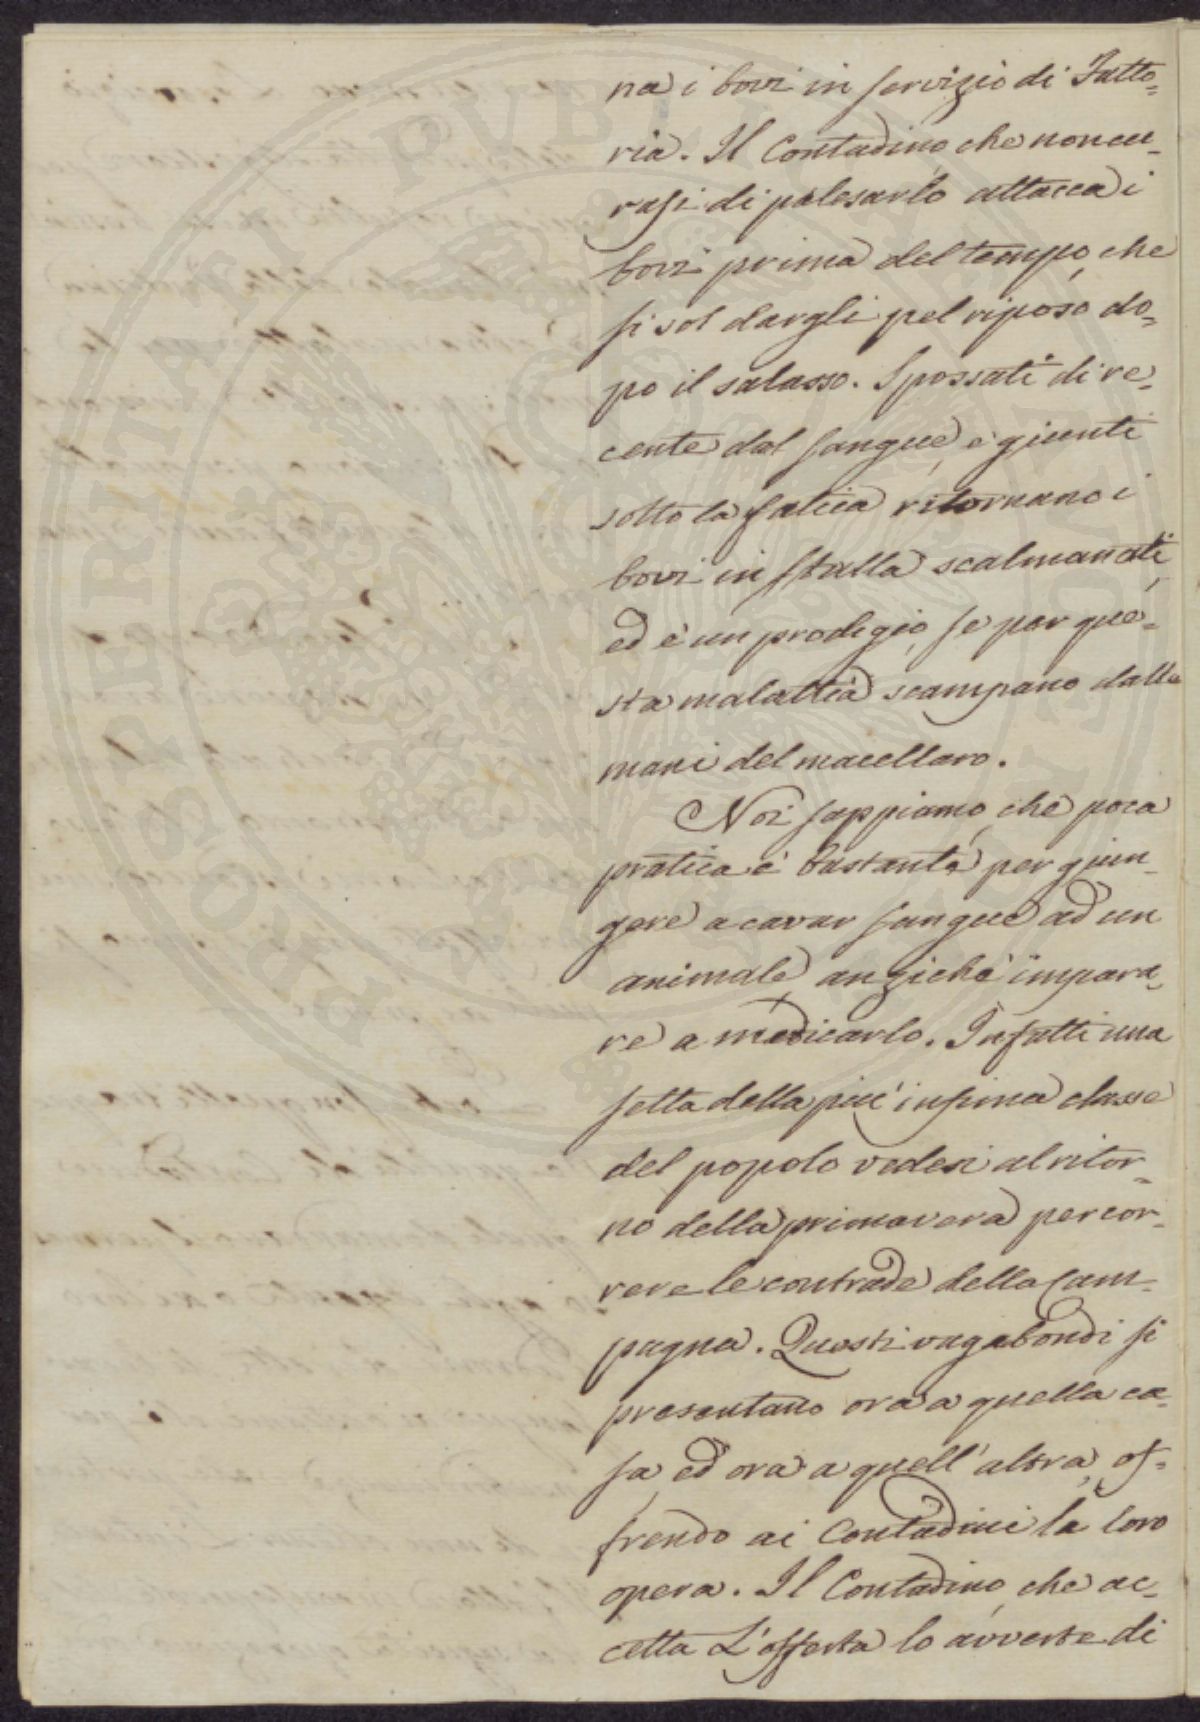 na i bovi in servizio di Fatto-
ria. Il Contadino, che non cu-
rasi di palesarlo attacca i
bovi prima del tempo, che
si sol dargli pel riposo do-
po il salasso. Spossati di re-
cente dal sangue, e giunti
sotto la fatica ritornano i
bovi in stalla scalmanati,
ed è un prodigio, se per que-
sta malattia scampano dalle
mani del macellaro.
Noi sappiamo, che poca
pratica è bastante per giun-
gere a cavar sangue ad un
animale, anzichè impara-
re a medicarlo. Infatti una
setta della più infima classe
del popolo vedesi al ritor-
no della primavera percor-
rere le contrade della Cam-
pagna. Questi vagabondi si
presentano ora a quella ca-
sa, ed ora a quell'altra, of-
frendo ai Contadini la loro
opera. Il Contadino, che ac-
cetta L'offerta lo avverte di
PROSPERITATI PVBLICAE